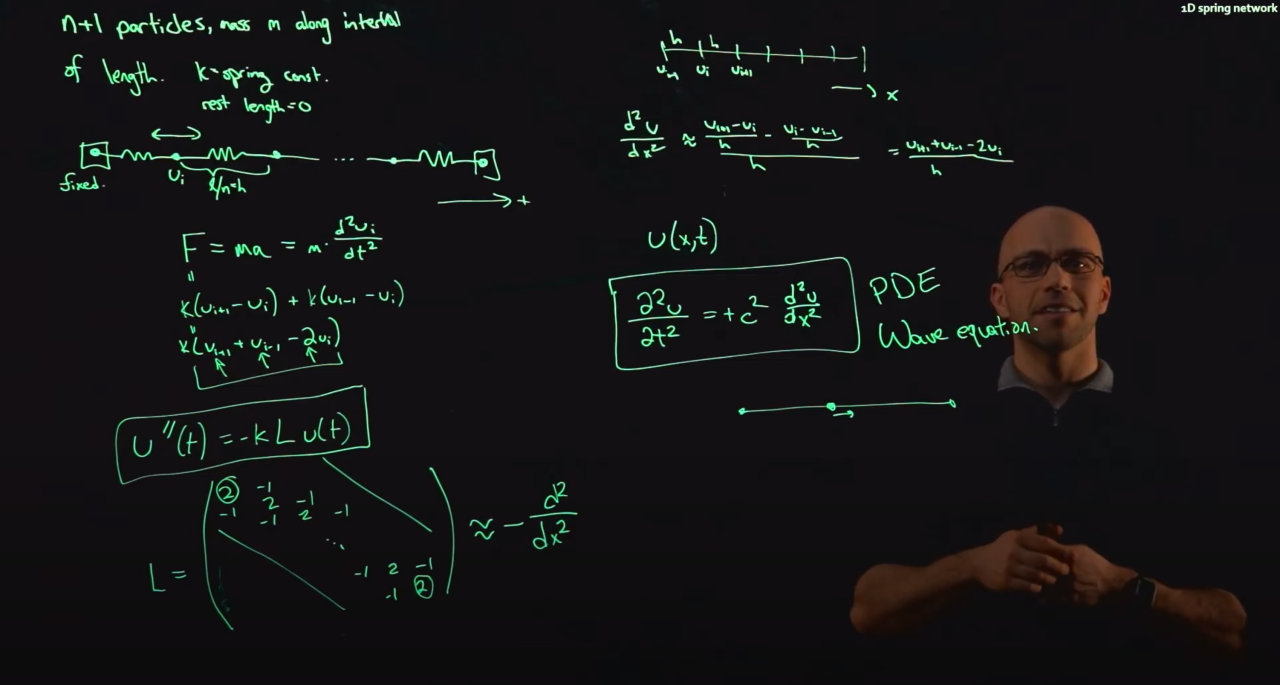 1D spring network
n+1 particles, mass m along interval
of length. k=spring const.
rest length=0
fixed.
u_i
l/n=h
→ +
F = ma = m · d²u_i/dt²
"
k(u_{i+1} - u_i) + k(u_{i-1} - u_i)
"
k(u_{i+1} + u_{i-1} - 2u_i)
u''(t) = -k L u(t)
L = ( 2 -1
-1 2 -1
-1 2 -1
⋱
-1 2 -1
-1 2 ) ≈ - d²/dx²
h h
u_i u_{i+1}
→ x
d²u/dx² ≈ ((u_{i+1} - u_i)/h - (u_i - u_{i-1})/h)/h = (u_{i+1} + u_{i-1} - 2u_i)/h
u(x,t)
∂²u/∂t² = +c² d²u/dx²
PDE
Wave equation.